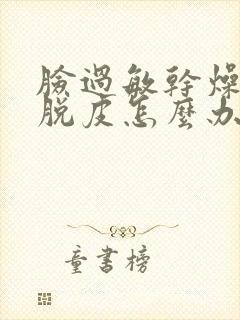 臉過敏幹燥
脫皮怎麼办
童書榜